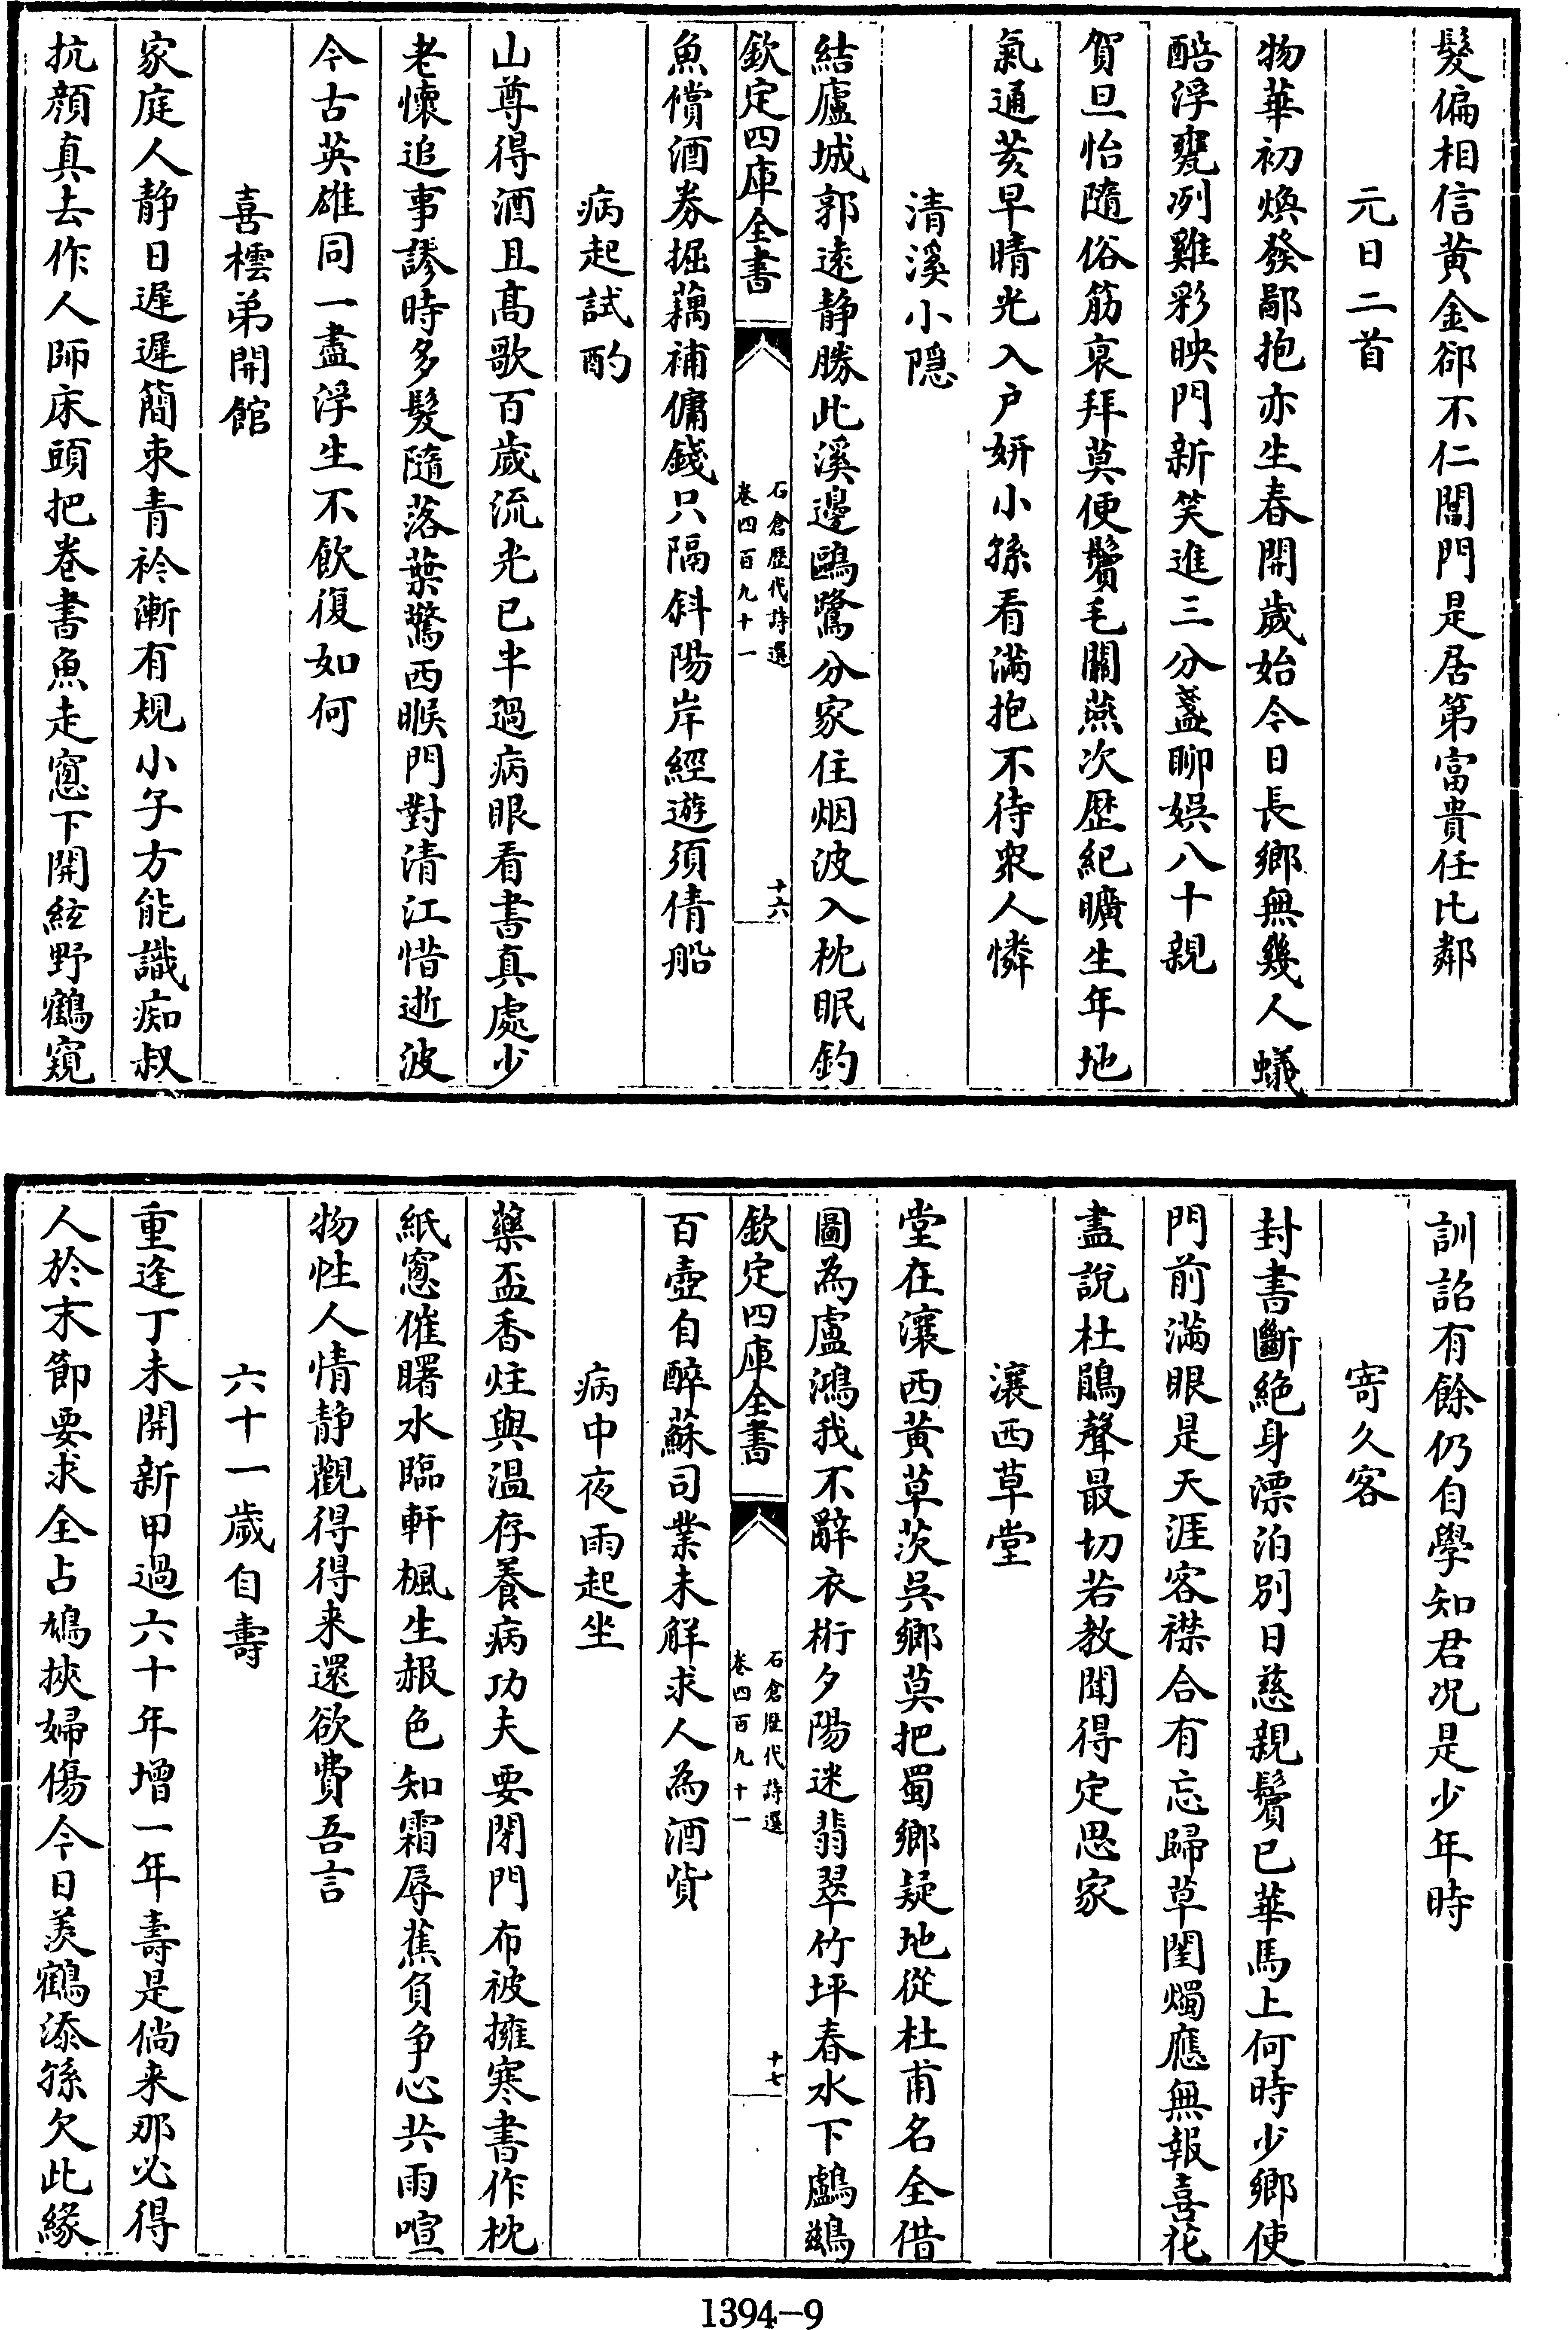 髮偏相信黄金郤不仁閭門是居第富貴任比鄰
元日二首
物華初煥發鄙抱亦生春開歲始今日長鄉無幾人蟻
醅浮甕冽雞彩映門新笑進三分盞聊娯八十親
賀旦怡隨俗筋衰拜莫便鬢毛關燕次歴紀曠生年地
氣通荄早晴光入户妍小孫看滿抱不待衆人憐
清溪小隠
結廬城郭遠静勝此溪邊鷗鷺分家住烟波入枕眠釣
欽定四庫全書
石倉歴代詩選
卷四百九十一
十六
魚償酒券掘藕補傭錢只隔斜陽岸經遊須倩船
病起試酌
山尊得酒且髙歌百歲流光已半過病眼看書真處少
老懷追事謬時多髮隨落葉驚西𠋫門對清江惜逝波
今古英雄同一盡浮生不飲復如何
喜橒弟開館
家庭人静日遲遲簡朿青衿漸有規小子方能識痴叔
抗顔真去作人師床頭把卷書魚走窻下開絃野鶴窺
訓詔有餘仍自學知君况是少年時
寄久客
封書斷絶身漂泊别日慈親鬢已華馬上何時少鄉使
門前滿眼是天涯客襟合有忘歸草閨燭應無報喜花
盡說杜鵑聲最切若教聞得定思家
瀼西草堂
堂在瀼西黄草茨呉鄉莫把蜀鄉疑地從杜甫名全借
圖為盧鴻我不辭衣桁夕陽迷翡翠竹坪春水下鸕鷀
欽定四庫全書
石倉歴代詩選
卷四百九十一
十七
百壺自醉蘇司業未解求人為酒貲
病中夜雨起坐
藥盃香炷與温存養病功夫要閉門布被擁寒書作枕
紙窻催曙水臨軒楓生赧色知霜辱蕉負争心共雨喧
物性人情静觀得得来還欲費吾言
六十一歲自壽
重逢丁未開新甲過六十年增一年壽是倘来那必得
人於末節要求全占鳩挾婦傷今日羡鶴添孫欠此緣
1394-9